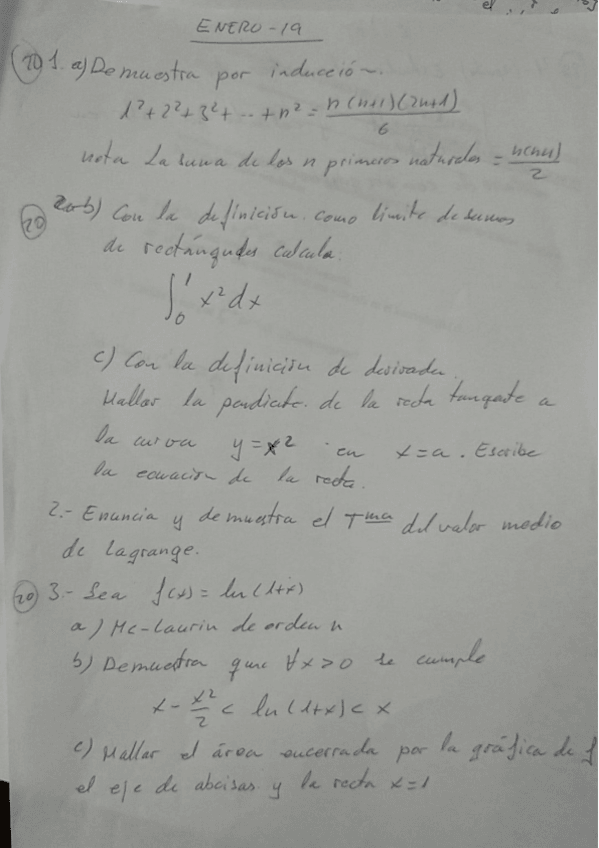 ENERO - 19
10 1. a) Demuestra por inducción.
1² + 2² + 3² + ... + n² = n(n+1)(2n+1) / 6
nota La suma de los n primeros naturales = n(n+1) / 2
20 b) Con la definición como límite de sumas
de rectángulos calcula.
∫₀¹ x² dx
c) Con la definición de derivada.
Hallar la pendiente de la recta tangente a
la curva y = x² en x = a. Escribe
la ecuación de la recta.
2.- Enuncia y demuestra el Tma del valor medio
de Lagrange.
20 3.- Sea f(x) = ln(1+x)
a) Mc-Laurin de orden n
b) Demuestra que ∀x>0 se cumple
x - x²/2 < ln(1+x) < x
c) Hallar el área encerrada por la gráfica de f
el eje de abcisas y la recta x = 1